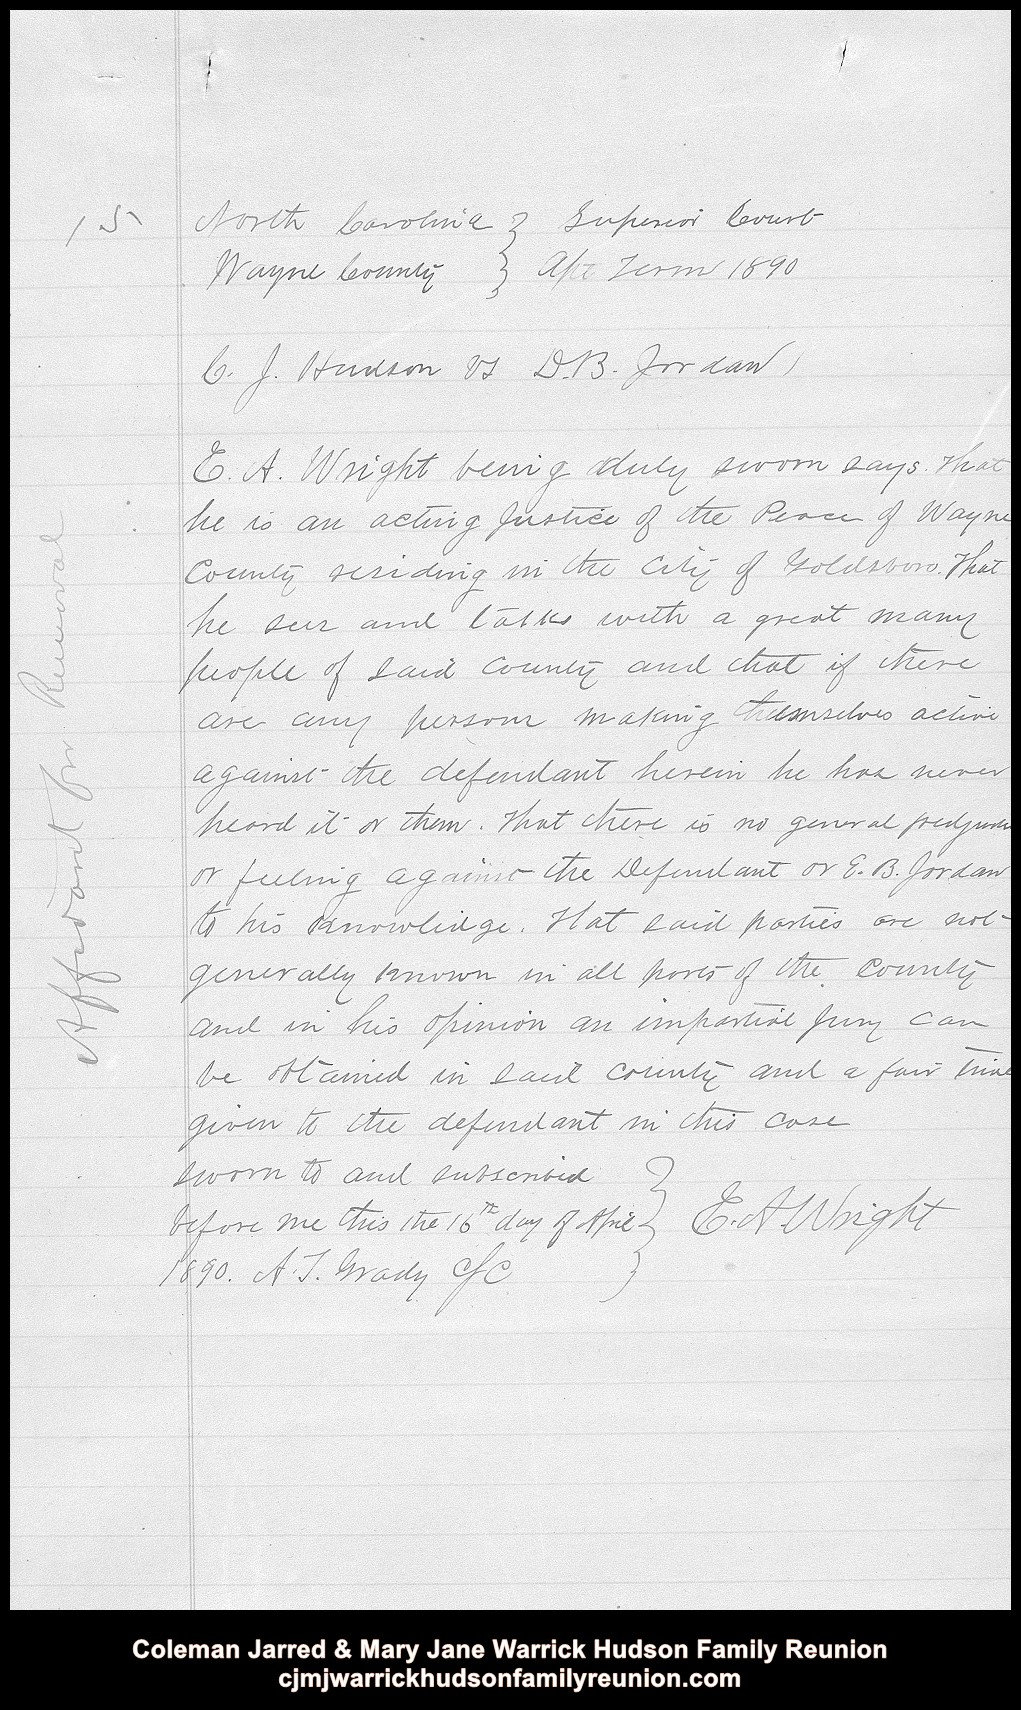 15
North Carolina } Superior Court
Wayne County } Apl Term 1890
C. J. Hudson vs D.B. Jordan
E. A. Wright being duly sworn says. That
he is an acting Justice of the Peace of Wayne
County residing in the City of Goldsboro. That
he sees and talks with a great many
people of said County and that if there
are any person making themselves active
against the defendant herein he has never
heard it or them. That there is no general
or feeling against the Defendant or E. B. Jordan
to his knowledge. That said parties are not
generally known in all parts of the County
and in his opinion an impartial Jury can
be obtained in said County and a fair trial
given to the defendant in this case
Sworn to and subscribed
before me this the 16th day of April } E. A. Wright
1890. A. T. Grady CSC
Affidavit for Removal
Coleman Jarred & Mary Jane Warrick Hudson Family Reunion
cjmjwarrickhudsonfamilyreunion.com